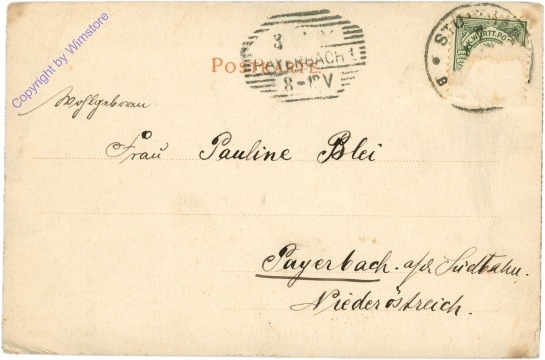 Copyright by Wimstore
POSTKARTE
PAYERBACH 1
8-12V
STU
K.WÜRTT.PO
Wohlgeboren
Frau Pauline Blei
Payerbach a/d Südbahn.
Niederöstreich.